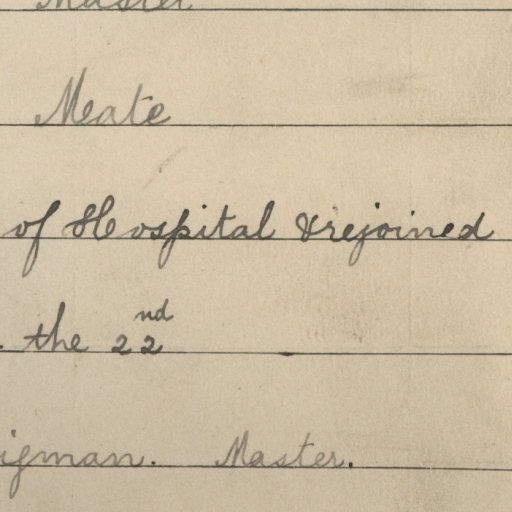 Master
Meate
of Hospital & rejoined
. the 22nd
igman. Master.